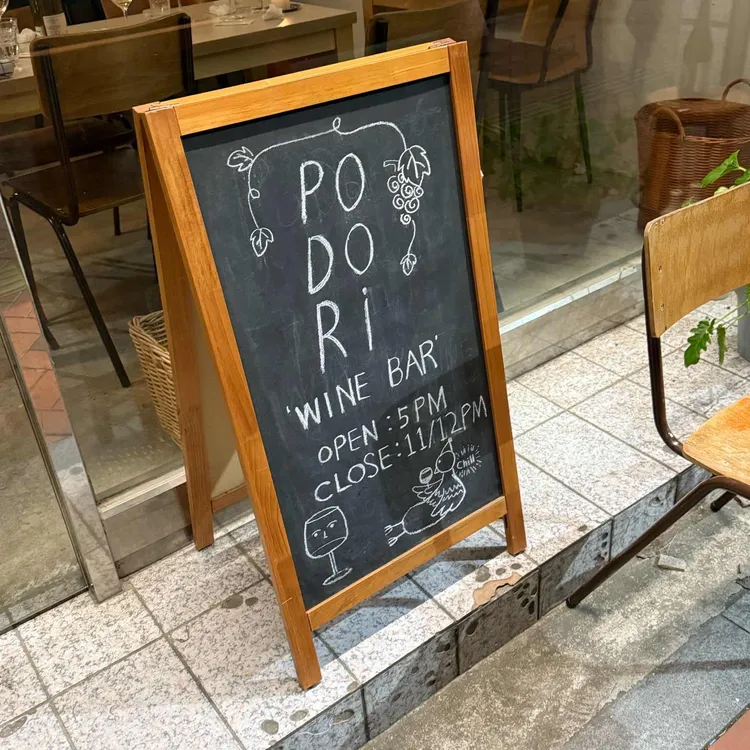 PO
DO
Ri
'WINE BAR'
OPEN : 5PM
CLOSE : 11/12PM
Chill